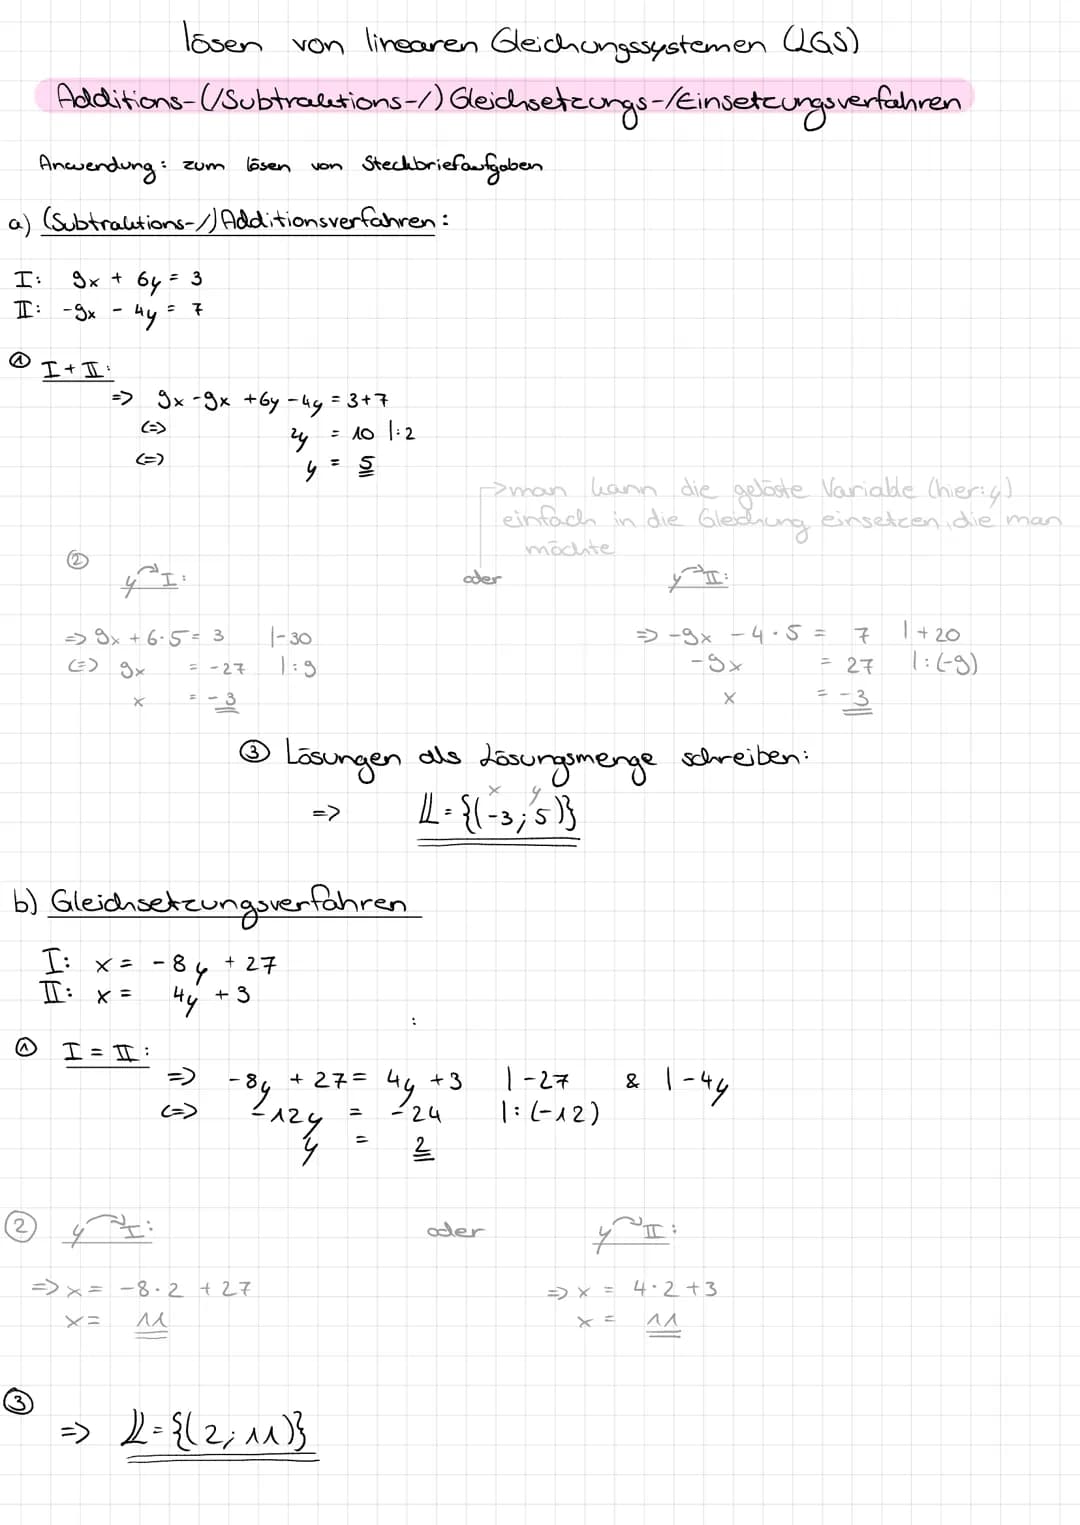 lösen von linearen Gleichungssystemen (LGS)
Additions-(/Subtraktions-/) Gleichsetzungs-/Einsetzungsverfahren
Anwendung: zum lösen von Steckbriefaufgaben
a) (Subtraktions-/) Additionsverfahren:
I: 9x + 6y = 3
II: -9x - 4y = 7
① I + II:
=> 9x - 9x + 6y - 4y = 3+7
(=) 2y = 10 |:2
(=) y = 5
->man kann die gelöste Variable (hier: y)
einfach in die Gleichung einsetzen, die man
möchte
② y↷I: oder y↷II:
=> 9x + 6·5 = 3 |-30 => -9x - 4·5 = 7 |+20
(=) 9x = -27 |:9 -9x = 27 |:(-9)
x = -3 x = -3
③ Lösungen als Lösungsmenge schreiben:
x y
=> 𝕃 = {(-3; 5)}
b) Gleichsetzungsverfahren
I: x = -8y + 27
II: x = 4y + 3
:
① I = II:
=> -8y + 27 = 4y + 3 |-27 & |-4y
(=> -12y = -24 |:(-12)
y = 2
② y↷I: oder y↷II:
=> x = -8·2 + 27 => x = 4·2 + 3
x = 11 x = 11
③
=> 𝕃 = {(2; 11)}